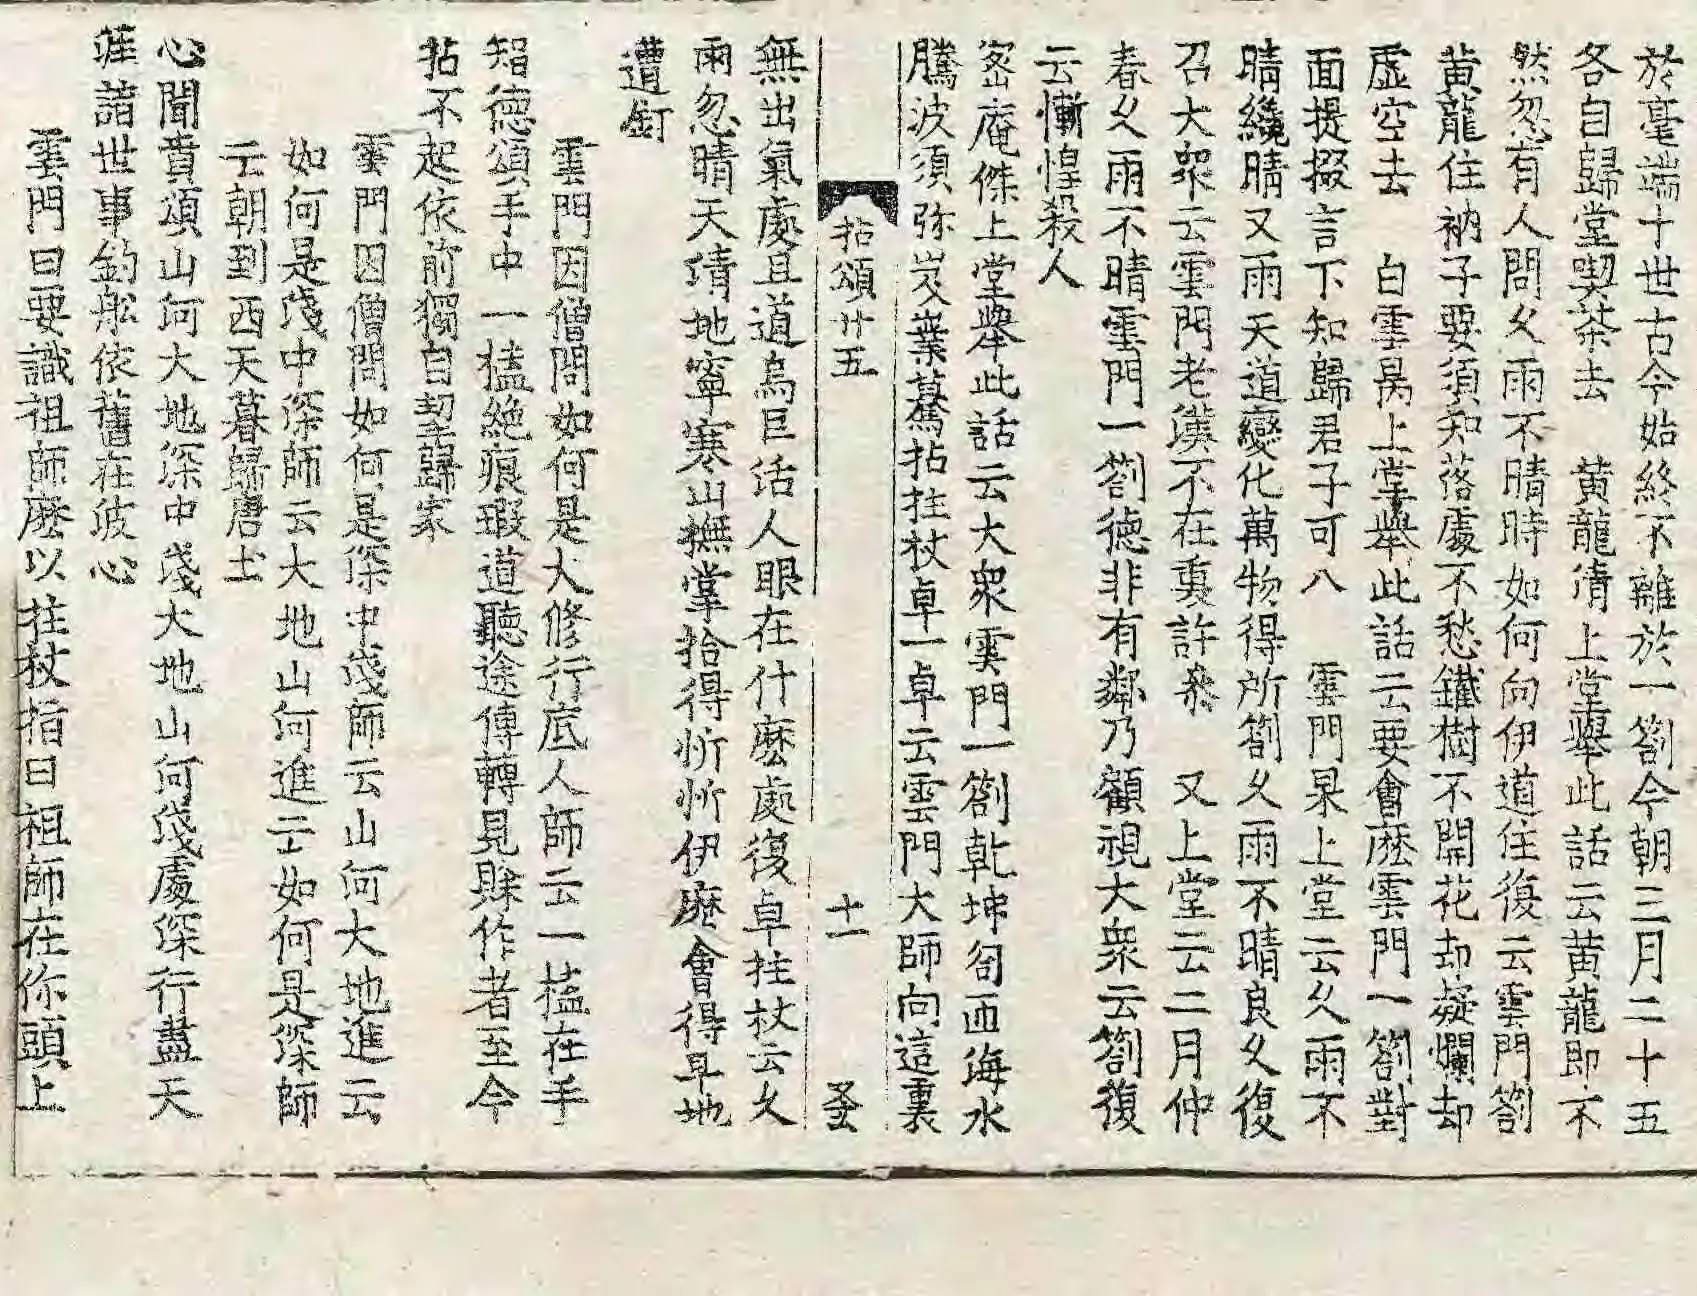 於毫端十世古今始終不離於一劄今朝三月二十五
各自歸堂喫茶去　黄龍清上堂舉此話云黄龍即不
然忽有人問久雨不晴時如何向伊道住復云雲門劄
黄龍住衲子要須知落處不愁鐵樹不開花却疑爛却
虛空去　白雲昺上堂舉此話云要會麽雲門一劄對
面提掇言下知歸君子可八　雲門杲上堂云久雨不
晴纔晴又雨天道變化萬物得所劄久雨不晴良久復
召大衆云雲門老漢不在更許參　又上堂云二月仲
春久雨不晴雲門一劄德非有鄰乃顧視大衆云劄復
云慚惶殺人
密庵傑上堂舉此話云大衆雲門一劄乾坤匌匝海水
騰波須弥岌嶪驀拈拄杖卓一卓云雲門大師向這裏
拈頌廿五
十一
無出氣處且道烏巨活人眼在什麽處復卓拄杖云久
雨忽晴天清地寧寒山撫掌拾得忻忻伊麽會得早地
遭釘
雲門因僧問如何是大修行底人師云一榼在手
智德頌手中一榼絶痕瑕道聽途傳轉見賖作者至今
拈不起依前獨自挈歸家
雲門因僧問如何是深中淺師云山河大地進云
如何是淺中深師云大地山河進云如何是深師
云朝到西天暮歸唐土
心聞賁頌山河大地深中淺大地山河淺處深行盡天
涯諳世事釣船依舊在波心
雲門曰要識祖師麽以拄杖指曰祖師在你頭上